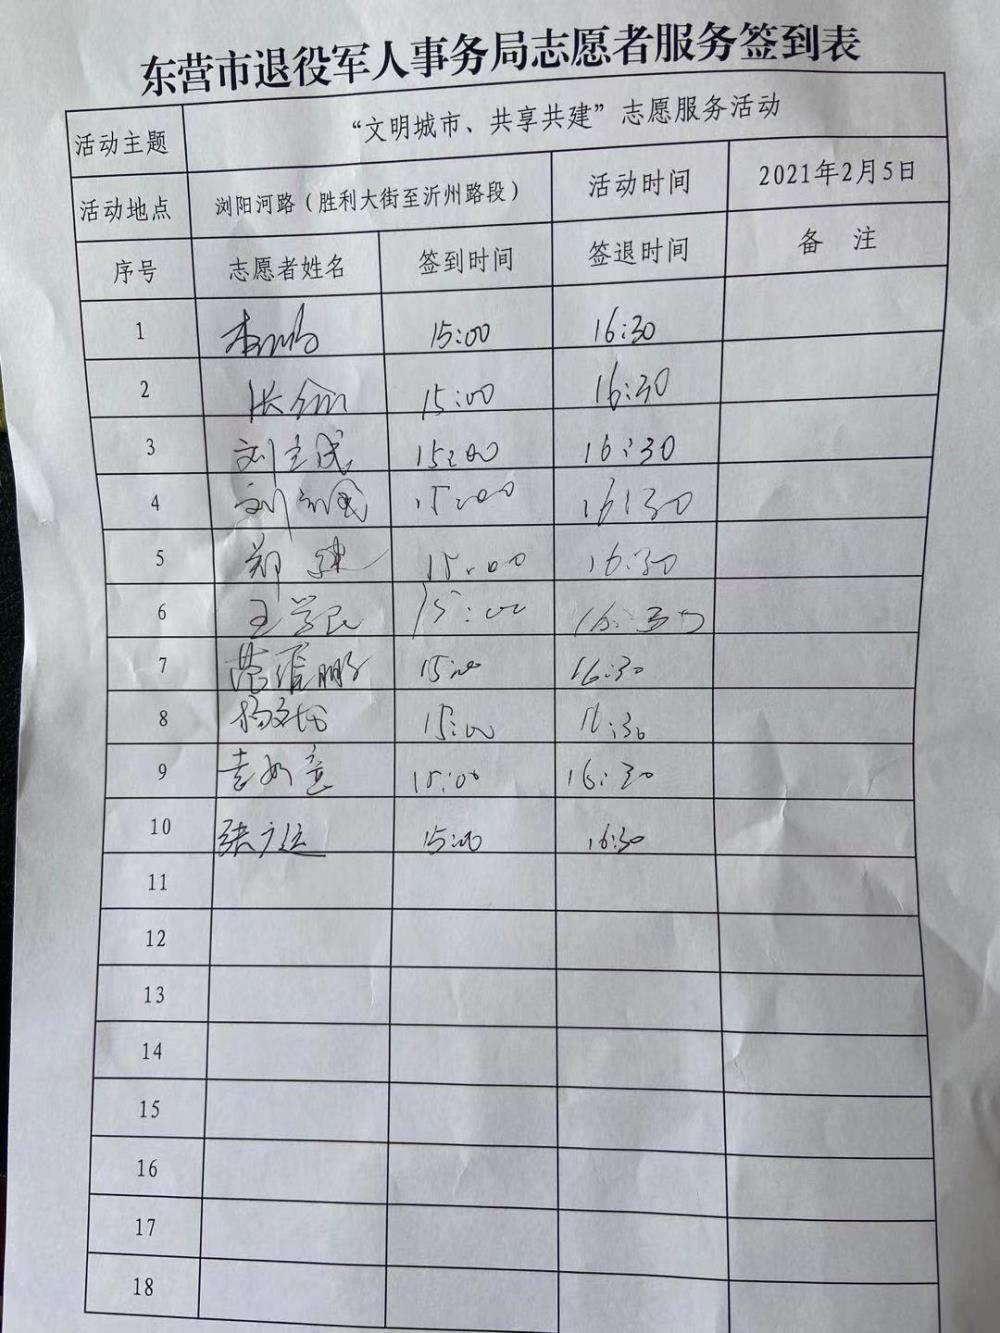 东营市退役军人事务局志愿者服务签到表
活动主题 “文明城市、共享共建”志愿服务活动
活动地点 浏阳河路（胜利大街至沂州路段） 活动时间 2021年2月5日
序号 志愿者姓名 签到时间 签退时间 备 注
1 15:00 16:30
2 15:00 16:30
3 15:00 16:30
4 15:00 16:30
5 郑 15:00 16:30
6 王学民 15:00 16:30
7 15:00 16:30
8 15:00 16:30
9 15:00 16:30
10 张广运 15:00 16:30
11
12
13
14
15
16
17
18